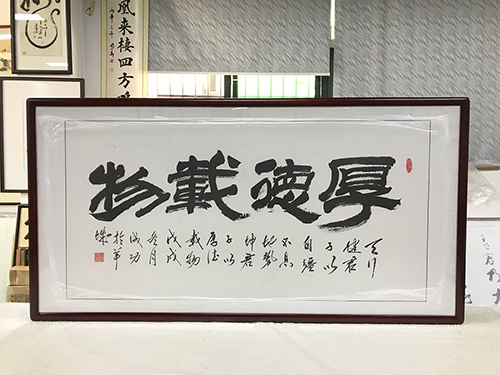 凰来棲四方
厚德載物
天行
健君
子以
自彊
不息
地勢
坤君
子以
厚德
載物
戊戌
冬月
成功
於羊
城